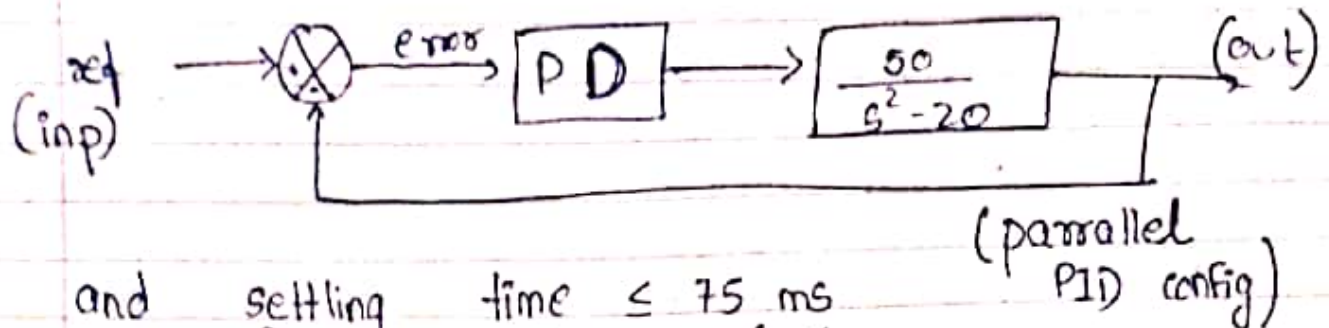 ref error PD 50 / s² - 20 (out)
(inp)
(parrallel
PID config)
and settling time ≤ 75 ms